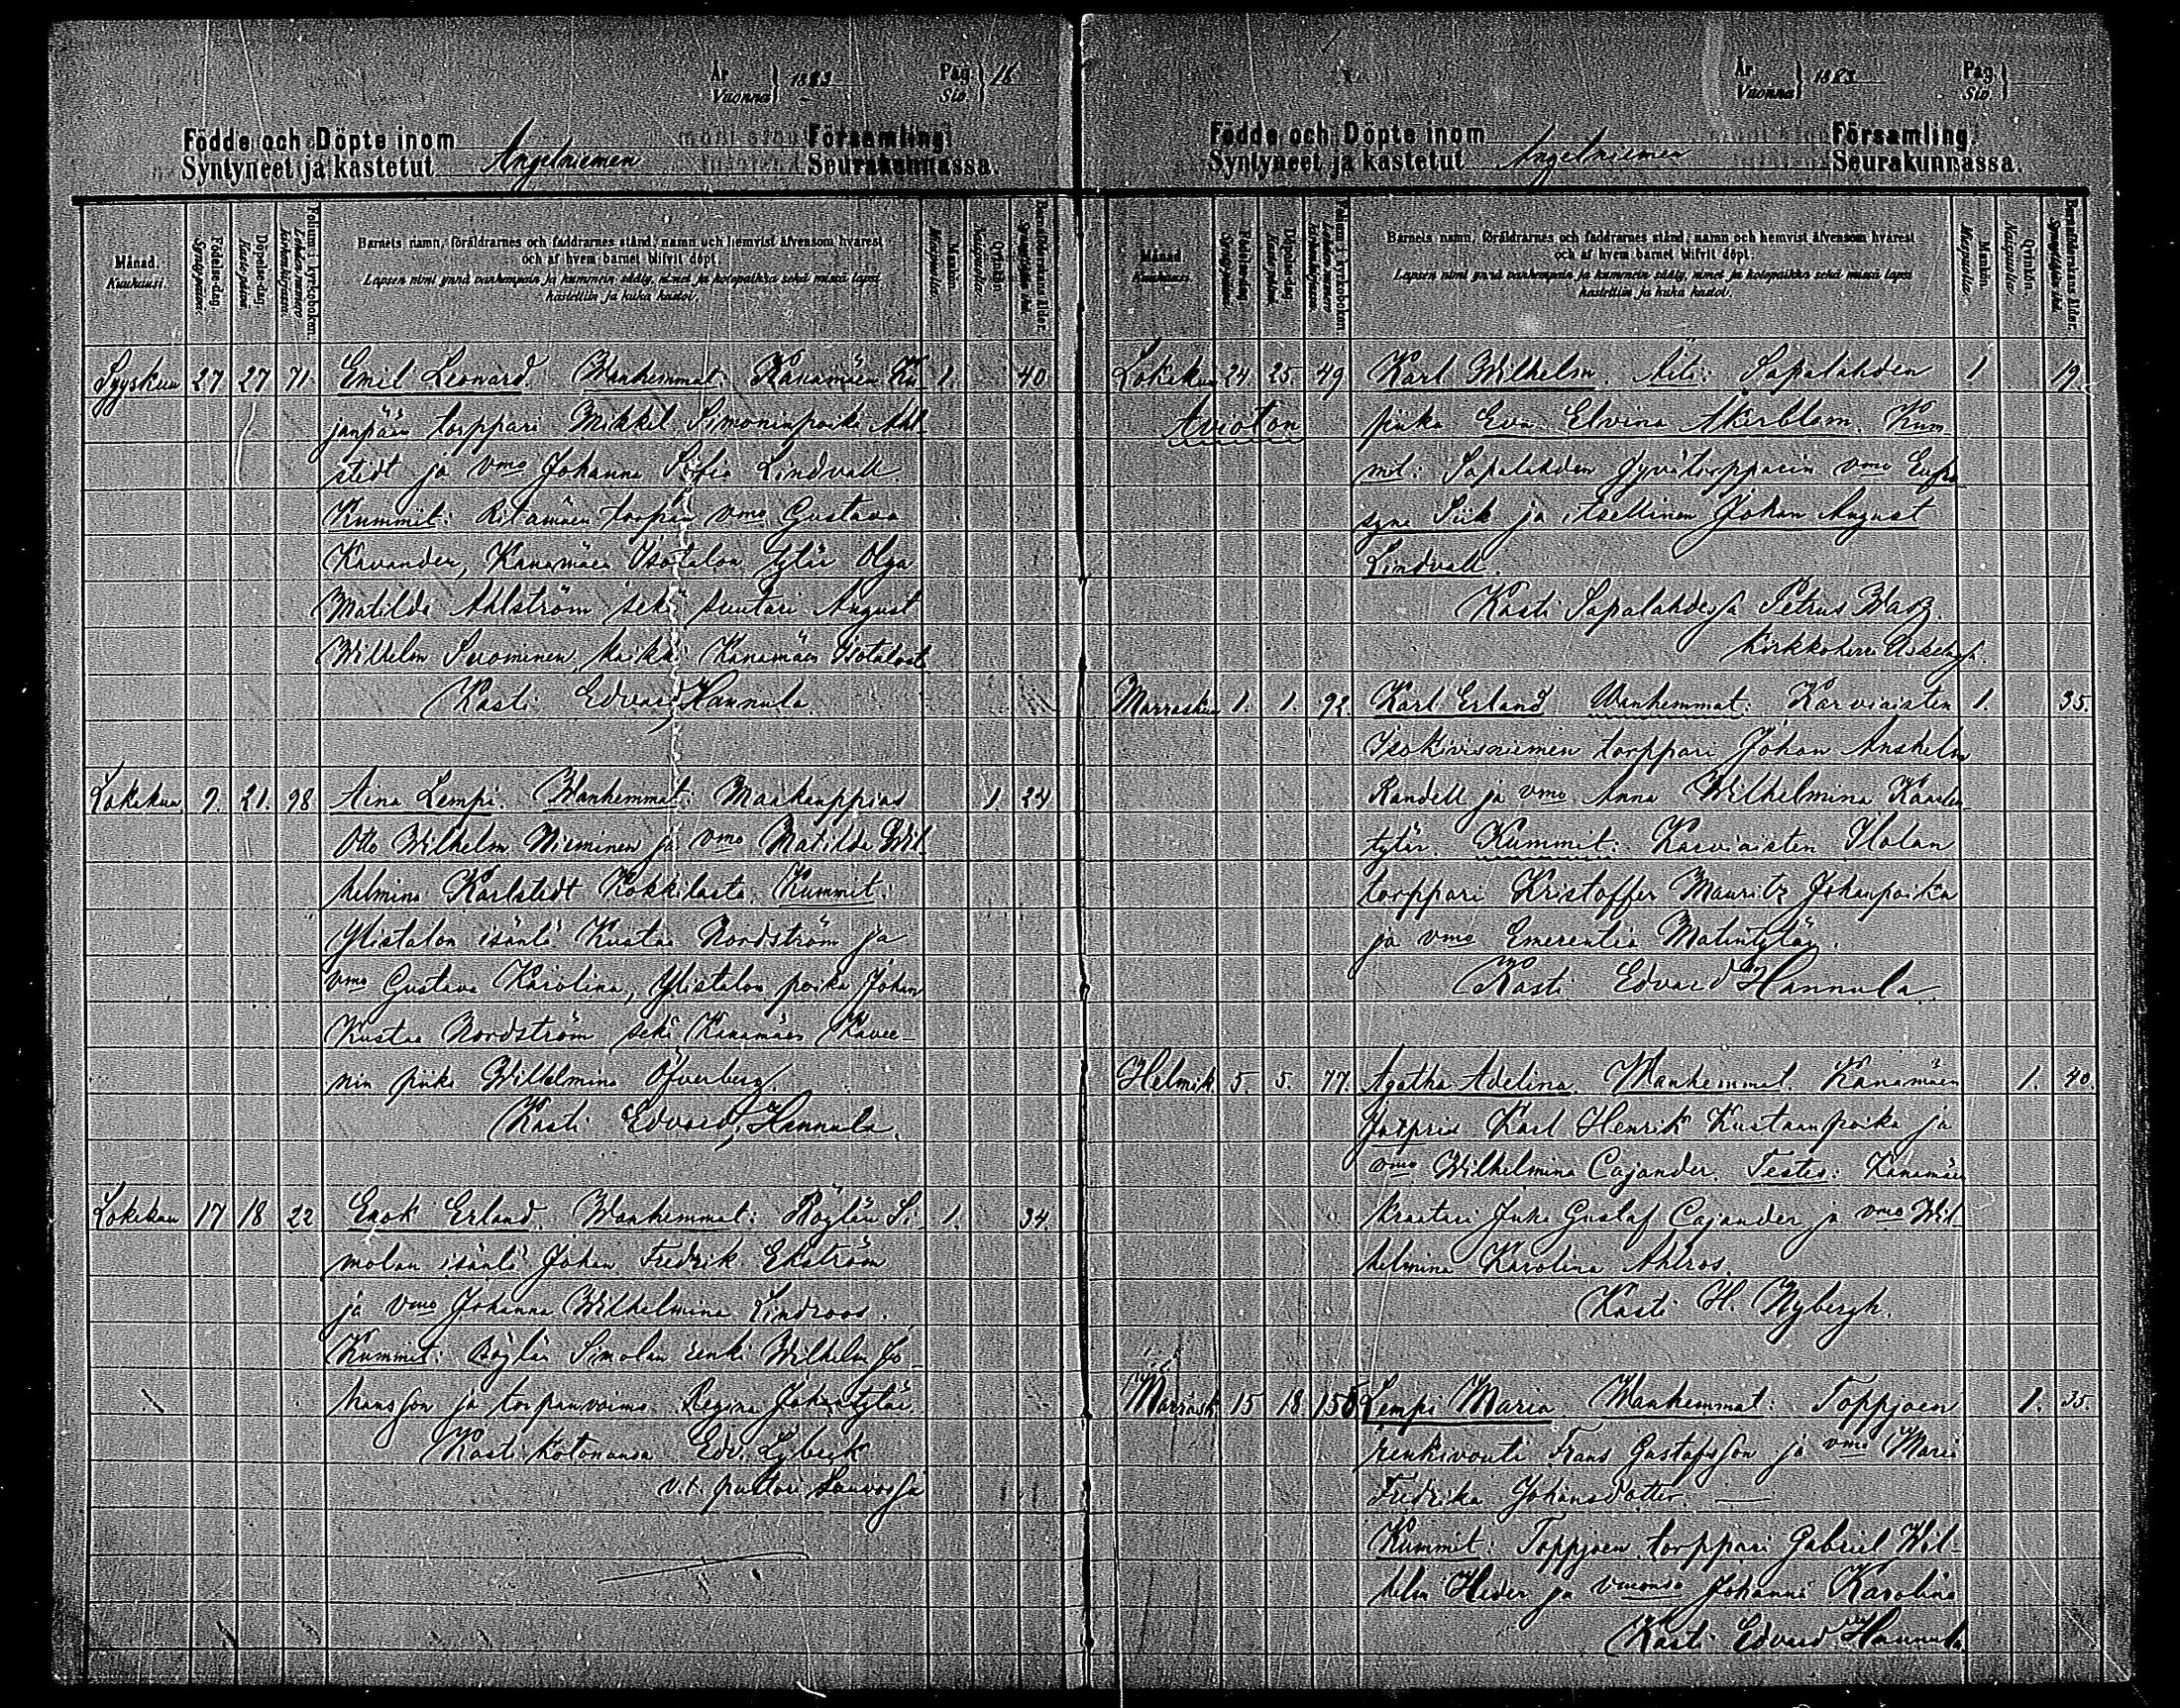 År Vuonna } 1883 Pag. Siv. } 16
Födde och Döpte inom Församling.
Syntyneet ja kastetut Angelniemen Seurakunnassa.
Månad. Kuukausi.
Födelse-dag. Syntypäivä.
Döpelse-dag. Kastepäivä.
Folium i kyrkoboken. Lehden numero kirkonkirjassa.
Barnets namn, föräldrarnes och faddrarnes stånd, namn och hemvist äfvensom hvarest
och af hvem barnet blifvit döpt.
Lapsen nimi ynnä vanhempain ja kummein sääty, nimet ja kotopaikka sekä missä lapsi
kastettiin ja kuka kastoi.
Mankön. Miespuolia.
Qvinkön. Naispuolia.
Barnaföderskans ålder.
Syyskuu 27 27 71. Emil Leonard. Wanhemmat: Kanamäen Ku- 1. 40
janpään torppari Mikkel Simoninpoika Ahl
stedt ja vmo Johanna Sofia Lindvall.
Kummit: Ritamäen torpan vmo Gustava
Kavander, Kanamäen Isotalon tytär Olga
Matilda Ahlström sekä suutari August
Wilhelm Suominen, kaikki Kanamäen Isotalosta
Kasti Edvard Hannula.
Lokakuu 9. 21. 98 Aina Lempi. Wanhemmat: Maakauppias 1. 24
Otto Wilhelm Nieminen ja vmo Matilda Wil
helmina Karlstedt Kokkilasta. Kummit:
Ylistalon isäntä Kustaa Nordström ja
vmo Gustava Karolina, Ylistalon poika Johan
Kustaa Nordström sekä Kanamäen Kavee-
nin piika Wilhelmina Öfverberg.
Kasti Edvard Hannula.
Lokakuu 17 18 22 Enok Erland. Wanhemmat: Pöylän Si- 1. 34.
molan isäntä Johan Fredrik Ekström
ja vmo Johanna Wilhelmina Lindroos.
Kummit: Pöylän Simolan renki Wilhelm Jo-
hansson ja torpanvaimo Regina Johantytär.
Kasti kotonansa Edv. Lybeck
v.t. pastori Sauvossa
År Vuonna } 1883 Pag. Siv. }
Födde och Döpte inom Församling.
Syntyneet ja kastetut Angelniemen Seurakunnassa.
Månad. Kuukausi.
Födelse-dag. Syntypäivä.
Döpelse-dag. Kastepäivä.
Folium i kyrkoboken. Lehden numero kirkonkirjassa.
Barnets namn, föräldrarnes och faddrarnes stånd, namn och hemvist äfvensom hvarest
och af hvem barnet blifvit döpt.
Lapsen nimi ynnä vanhempain ja kummein sääty, nimet ja kotopaikka sekä missä lapsi
kastettiin ja kuka kastoi.
Mankön. Miespuolia.
Qvinkön. Naispuolia.
Barnaföderskans ålder.
Lokakuu 24. 25. 49 Karl Wilhelm. Äiti: Sapalahden 1 19.
Avioton piika Eva Elvina Åkerblom. Kum-
mit: Sapalahden Jyvätorpparin vmo Eufro
syne Siik ja itsellinen Johan August
Lindvall.
Kasti Sapalahdessa Petrus
Kirkkoherra
Marraskuu 1. 1. 92. Karl Erland Wanhemmat: Karviaisten 1. 35.
Isokivisniemen torppari Johan Anshelm
Randell ja vmo Anna Wilhelmina Kaarlen-
tytär. Kummit: Karviaisten Ylotan
torppari Kristoffer Mauritz Johanpoika
ja vmo Emerentia Matintytär.
Kasti Edvard Hannula.
Helmik. 5. 5. 77. Agatha Adelina. Wanhemmat. Kanamäen 1. 40.
Karl Henrik Kustaanpoika ja
vmo Wilhelmina Cajander. Testes: Kanamäen
kraatari Juha Gustaf Cajander ja vmo Wil-
helmina Karolina Ahlros.
Kasti H. Nybergh.
Marrask. 15 18. 155 Lempi Maria Wanhemmat: Toppjoen 1. 35.
renkivouti Frans Gustafsson ja vmo Maria
Fredrika Johansdotter. —
Kummit: Toppjoen torppari Gabriel Wil-
helm Heden ja vmonsa Johanna Karolina
Kasti Edvard Hannula